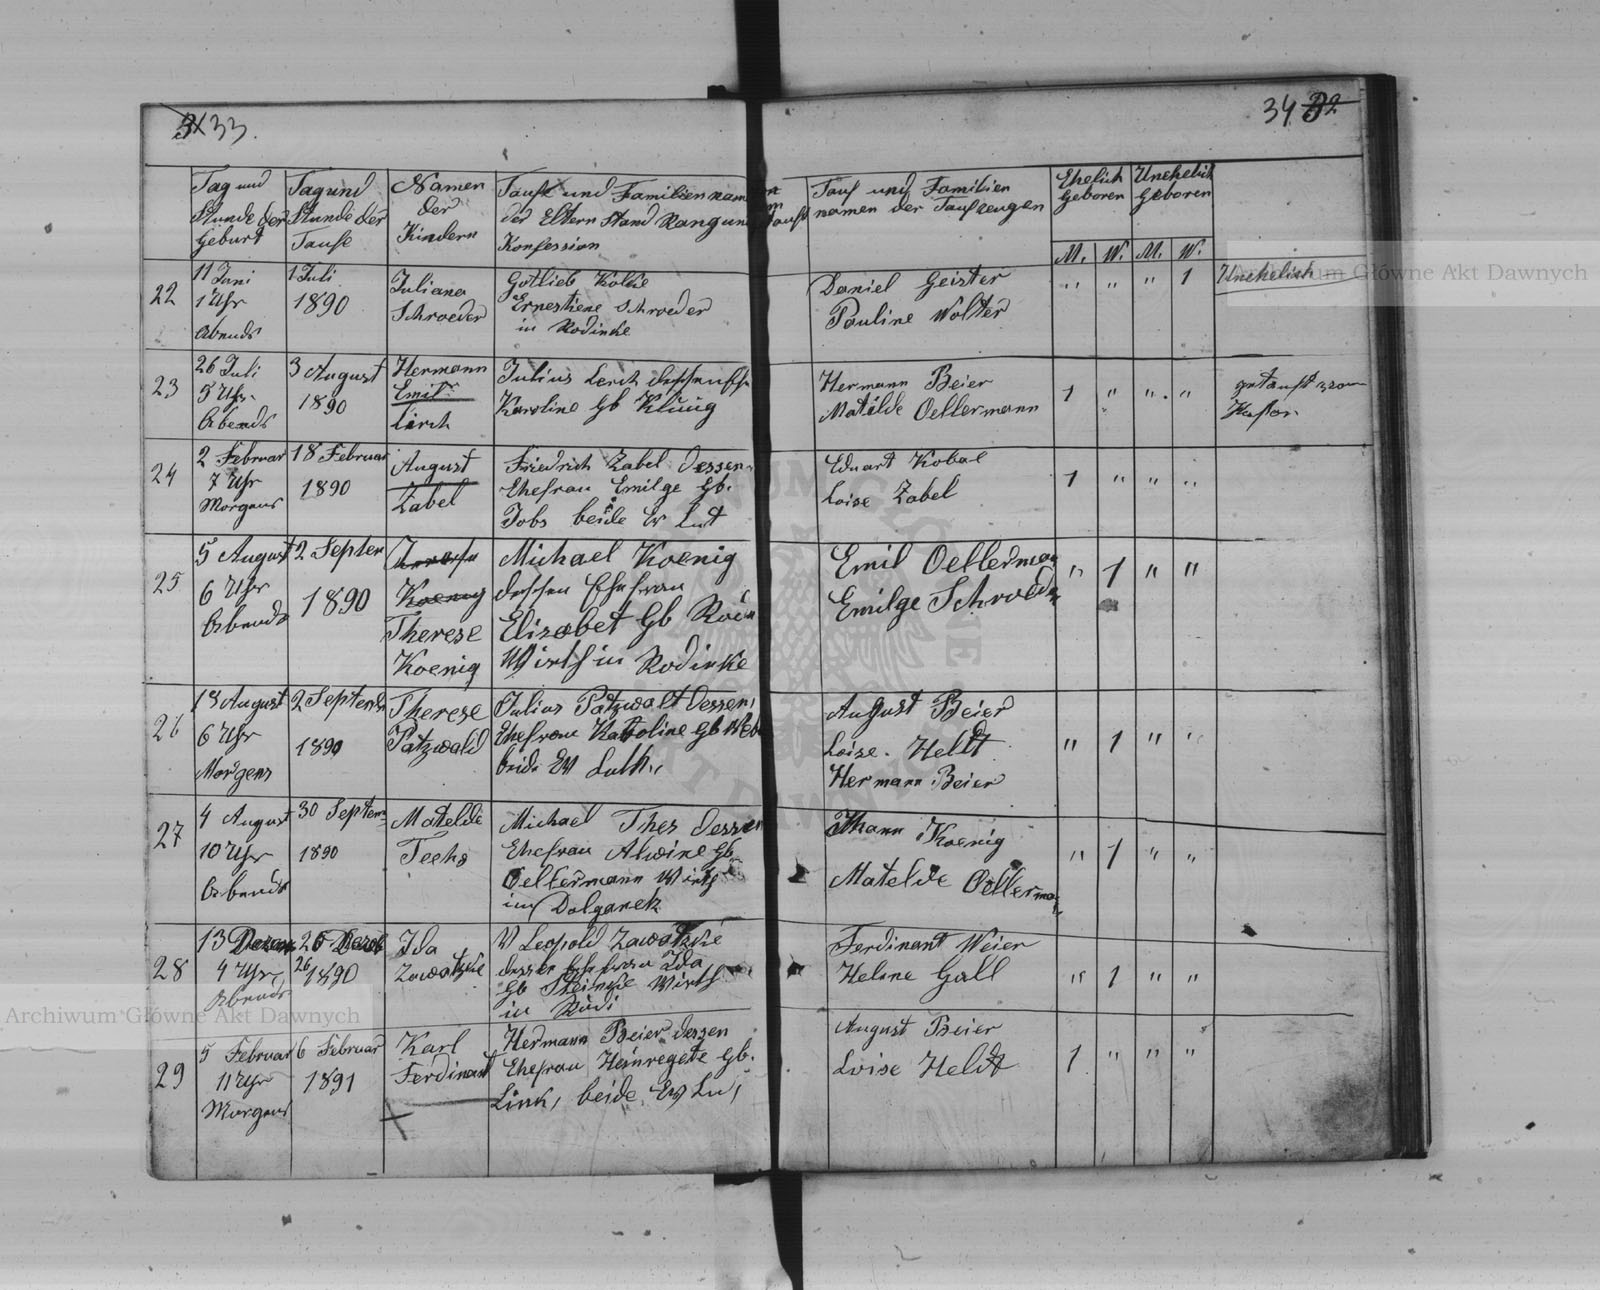 33.
34 32
Tag und Stunde der Geburt
Tag und Stunde der Taufe
Namen der Kindern
Tauf und Familien namen der Eltern Stand Rang und Konfession
Tauf und Familien namen der Taufzeugen
Ehelich Geboren
Unehelich Geboren
M. W. M. W.
22
11 Juni
1 Uhr
Abends
1 Juli
1890
Juliana
Schroeder
Gotlieb Kolke
Ernestiene Schroeder
in Rodinke
Daniel Geister
Pauline Wolter
" " " 1
Unehelich
23
26 Juli
5 Uhr
Abends
3 August
1890
Hermann
Emil
Lerch
Julius Lerch dessen
Karoline Gb
Hermann Beier
Matilde Oellermann
1 " " "
getauft
24
2 Februar
7 Uhr
Morgens
18 Februar
1890
August
Zabel
Friedrich Zabel dessen
Ehefrau Emilge Gb.
Jobs beide Ev Lut
Eduart
Loise Zabel
1 " " "
25
5 August
6 Uhr
Abends
2 Septem
1890
Koenig
Therese
Koenig
Michael Koenig
dessen Ehefrau
Elisabet Gb
Wirth in Rodinke
Emil Oellerman
Emilge Schroeder
" 1 " "
26
18 August
6 Uhr
Morgens
2 Septemb
1890
Therese
Patzwald
Julius Patzwalt dessen
Ehefrau Karoline Gb
beide Ev Luth.
August Beier
Loise Heldt
Hermann Beier
" 1 " "
27
4 August
10 Uhr
Abends
30 Septem
1890
Matelde
Teehs
Michael Thes dessen
Ehefrau Alwine Gb
Oellermann Wirth
im Dolganek
Koenig
Matelde Oellerman
" 1 " "
28
13
4 Uhr
Abends
26
1890
Ida
Zawatzkie
W Leopold Zawatzkie
dessen Ehefrau Ida
Gb Wirth
in
Ferdinant Weier
Helene Gall
" 1 " "
29
5 Februar
11 Uhr
Morgens
6 Februar
1891
Karl
Ferdinant
Hermann Beier dessen
Ehefrau Heinregete Gb.
Link, beide Ev Lu,
August Beier
Loise Heldt
1 " " "
Archiwum Główne Akt Dawnych
Archiwum Główne Akt Dawnych